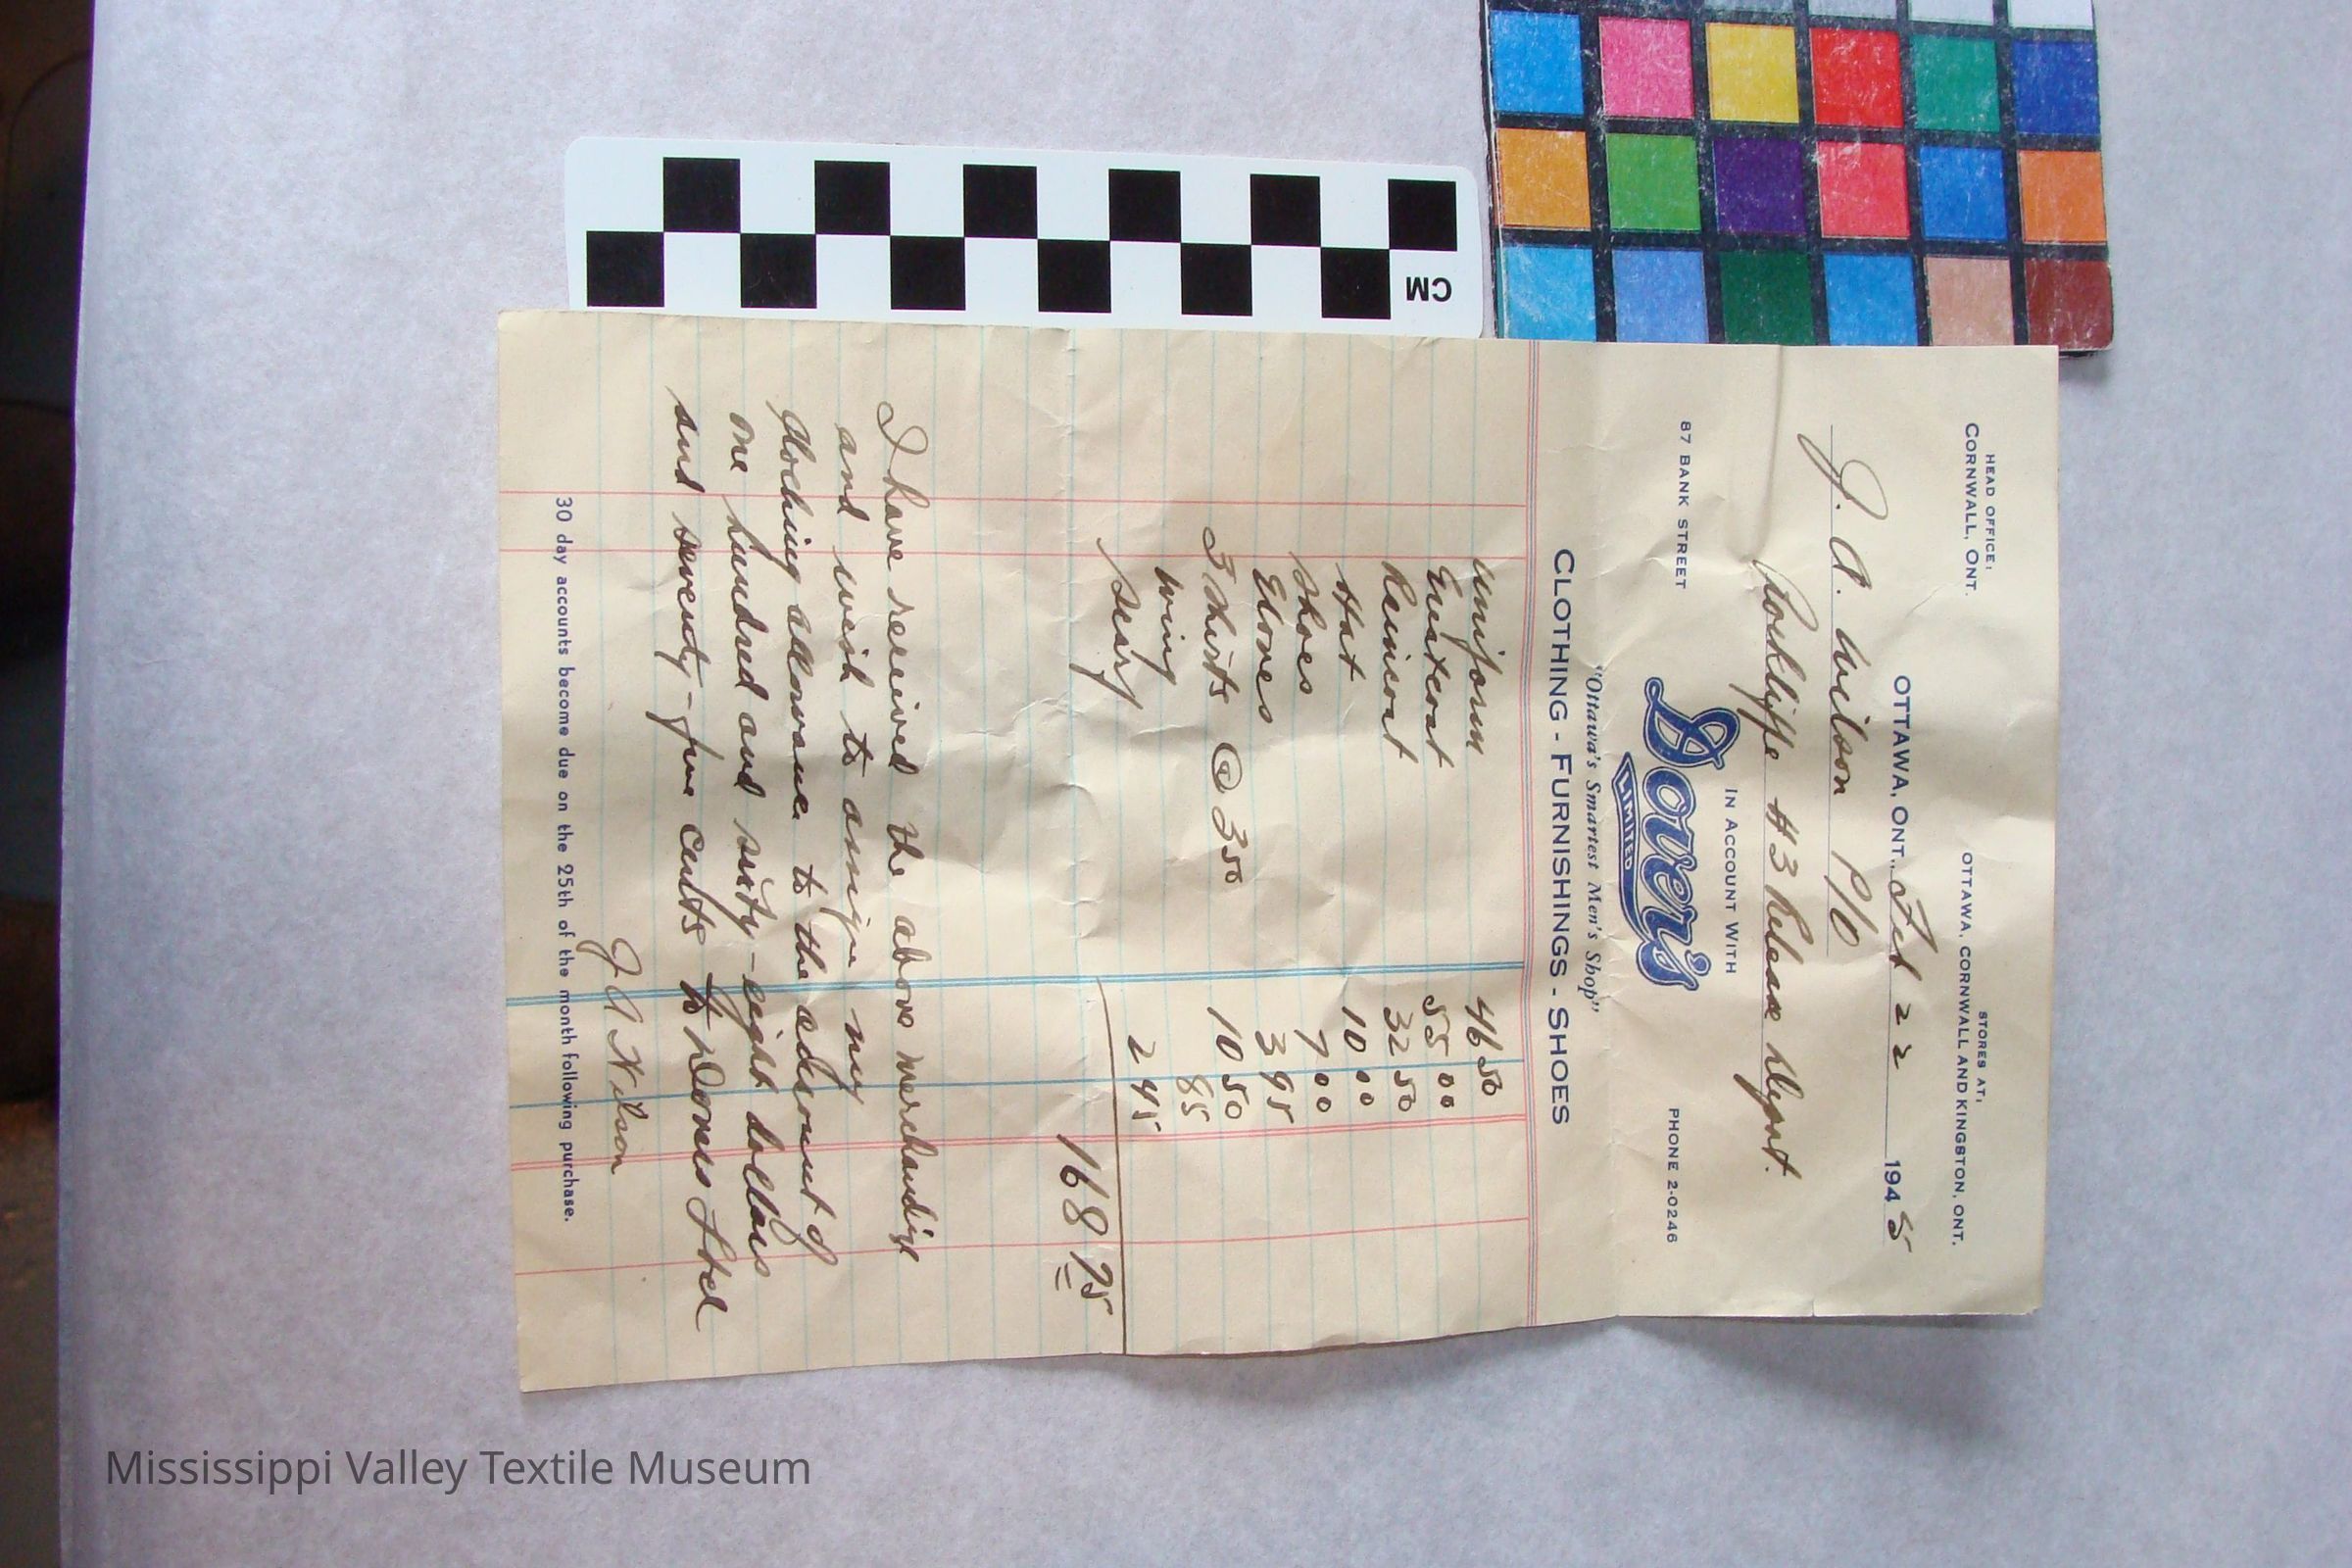 HEAD OFFICE:
CORNWALL, ONT.
STORES AT:
OTTAWA, CORNWALL AND KINGSTON, ONT.
OTTAWA, ONT., Feb 22 1945
J. A. Wilson P/O
Rockliffe #3 Release Depot.
IN ACCOUNT WITH
87 BANK STREET
Dover's
LIMITED
PHONE 2-0246
"Ottawa's Smartest Men's Shop"
CLOTHING - FURNISHINGS - SHOES
Uniform 46 50
Greatcoat 55 00
Raincoat 32 50
Hat 10 00
Shoes 7 00
Gloves 3 95
3 Shirts @ 3 50 10 50
Wing 85
2 45
168 75
I have received the above merchandise
and wish to assign my
clothing allowance to the amount of
one hundred and sixty-eight dollars
and seventy-five cents to Dovers Ltd
J A Wilson
30 day accounts become due on the 25th of the month following purchase.
CM
Mississippi Valley Textile Museum